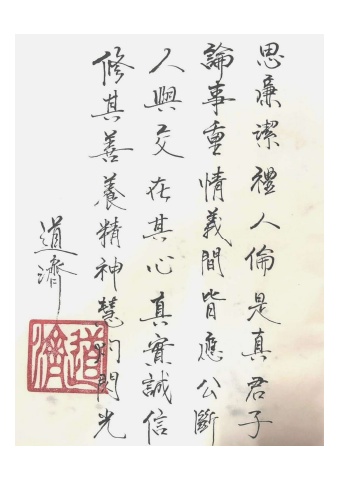 思廉潔禮人倫是真君子
論事重情義間皆應公斷
人與交在其心真實誠信
修其善養精神慧門閃光
道濟
道濟